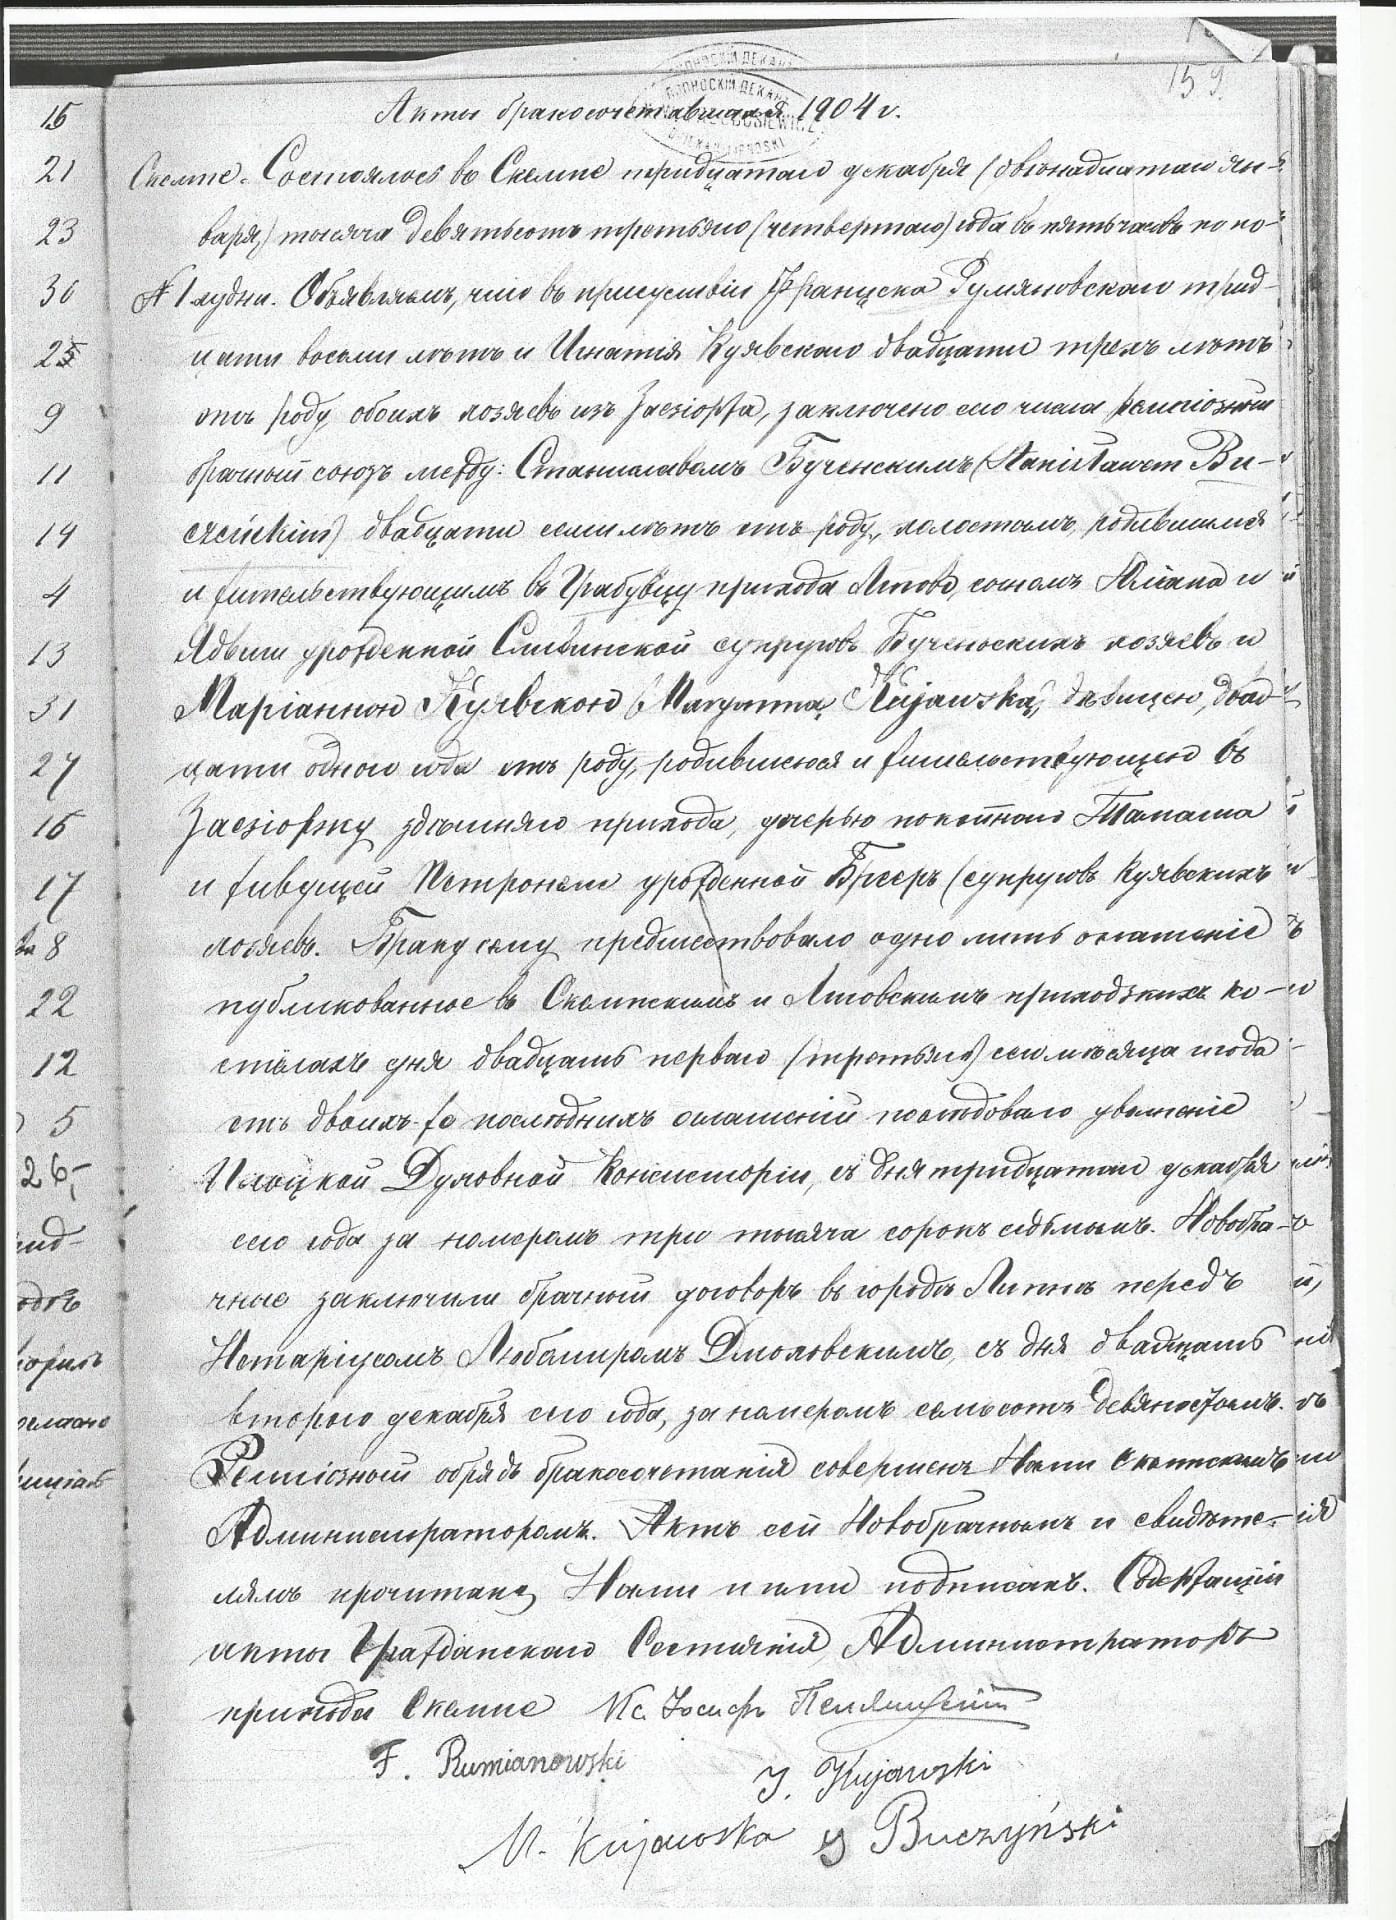 159.
Акты бракосочетавшихся 1904 г.
15
21
23
30
25
9
11
14
4
13
31
27
16
17
8
22
12
5
26,
Скемпе. Состоялось въ Скемпе тридцатаго декабря (двѣнадцатаго ян-
варя) тысяча девятьсотъ третьяго (четвертаго) года въ пять часовъ по по-
№ 1 лудни. Объявляемъ, что въ присуствіи Францска Румяновскаго трид-
цати восьми лѣтъ и Игнатія Куявскаго двадцати трехъ лѣтъ
отъ роду, обоихъ хозяевъ изъ Jaeziorka, заключено сего числа религіозный
брачный союзъ между: Станиславомъ Бученскимъ (Stanisławem Bu-
czeńskim) двадцати семи лѣтъ отъ роду, холостымъ, родившимся
и жительствующимъ въ Грабувцу прихода Лигово, сыномъ Юліана и
Ядвиги урожденной Сливинской супруговъ Бученьскихъ хозяевъ и
Маріанною Куявскою (Maryanną Kujawską), дѣвицею, двад-
цати одного года отъ роду, родившеюся и жительствующею въ
Jaeziorku здѣшняго прихода, дочерью покойнаго Томаша
и живущей Петронели урожденной (супруговъ Куявскихъ
хозяевъ. Браку сему предшествовало одно лишь оглашеніе
публикованное въ Скемпскимъ и Лиговскимъ приходзкихъ ко-
стёлахъ дня двадцать перваго (третьяго) сего мѣсяца и года
отъ двоихъ же послѣднихъ оглашеній послѣдовало увольненіе
Плоцкой Духовной Консисторіи, съ дня тридцатаго декабря
сего года за номеромъ три тысяча сорокъ седьмымъ. Новобра-
чные заключили брачный договоръ въ городѣ Липнѣ передъ
Нотаріусомъ Любомиромъ Дмоховскимъ, съ дня двадцать
второго декабря сего года, за номеромъ семьсотъ девяностымъ.
Религіозный обрядъ бракосочетанія совершенъ Нами Скемпскимъ
Администраторомъ. Актъ сей Новобрачнымъ и свидѣте-
лямъ прочитанъ, Нами и ими подписанъ. Содержащій
акты Гражданскаго Состоянія, Администраторъ
прихода Скемпе Кс. Іосифъ
F. Rumianowski
J. Kujawski
M. Kujawska
Buczyński